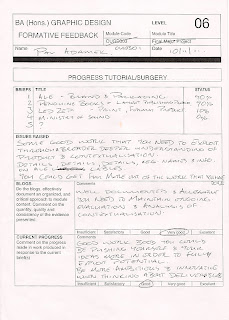 BA (Hons.) GRAPHIC DESIGN
LEVEL 06
FORMATIVE FEEDBACK
Module Code
Module Title
OUGD303
Name
10/1/11
PROGRESS TUTORIAL/SURGERY
BRIEFS
TITLE
STATUS
1
ALE - BRAND & PACKAGING
90%
2
PENGUIN BOOKS
70%
3
LED ZEP -
4
MINISTRY OF SOUND
5
ISSUES RAISED
SOME GOOD WORK THAT YOU NEED TO EXPLOIT
THROUGH BROADER DEEPER UNDERSTANDING OF
PRODUCT & CONTEXTUALISATION.
DETAILS DETAILS DETAILS
ON ALE LABELS.
YOU COULD GET FAR MORE OUT OF THE WORK THAT YOU'RE
BLOGS
On the blogs, effectively
document an organised, and
critical approach to module
content. Comment on the
quantity, quality and
consistency of the evidence
presented.
Comments
WELL DOCUMENTED &
YOU NEED TO MAINTAIN ONGOING
EVALUATION & ANALYSIS OF
CONTEXTUALISATION.
Insufficient
Satisfactory
Good
Very good
Excellent
CURRENT PROGRESS
Comment on the progress
made in work produced in
response to the current
brief(s)
Comments
GOOD WORK BUT YOU COULD
BE PUSHING YOURSELF & YOUR
IDEAS MORE IN ORDER TO FULLY
EXPLOIT POTENTIAL.
BE MORE AMBITIOUS & INNOVATIVE
WHEN THINKING ABOUT DELIVERABLES
Insufficient
Satisfactory
Good
Very good
Excellent